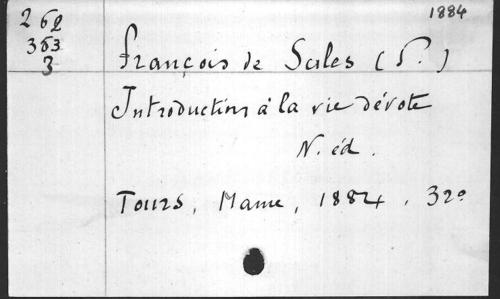 1884
262
353
3
François de Sales (S.)
Introduction à la vie dévote
N. éd.
Tours, Mame, 1884. 32º